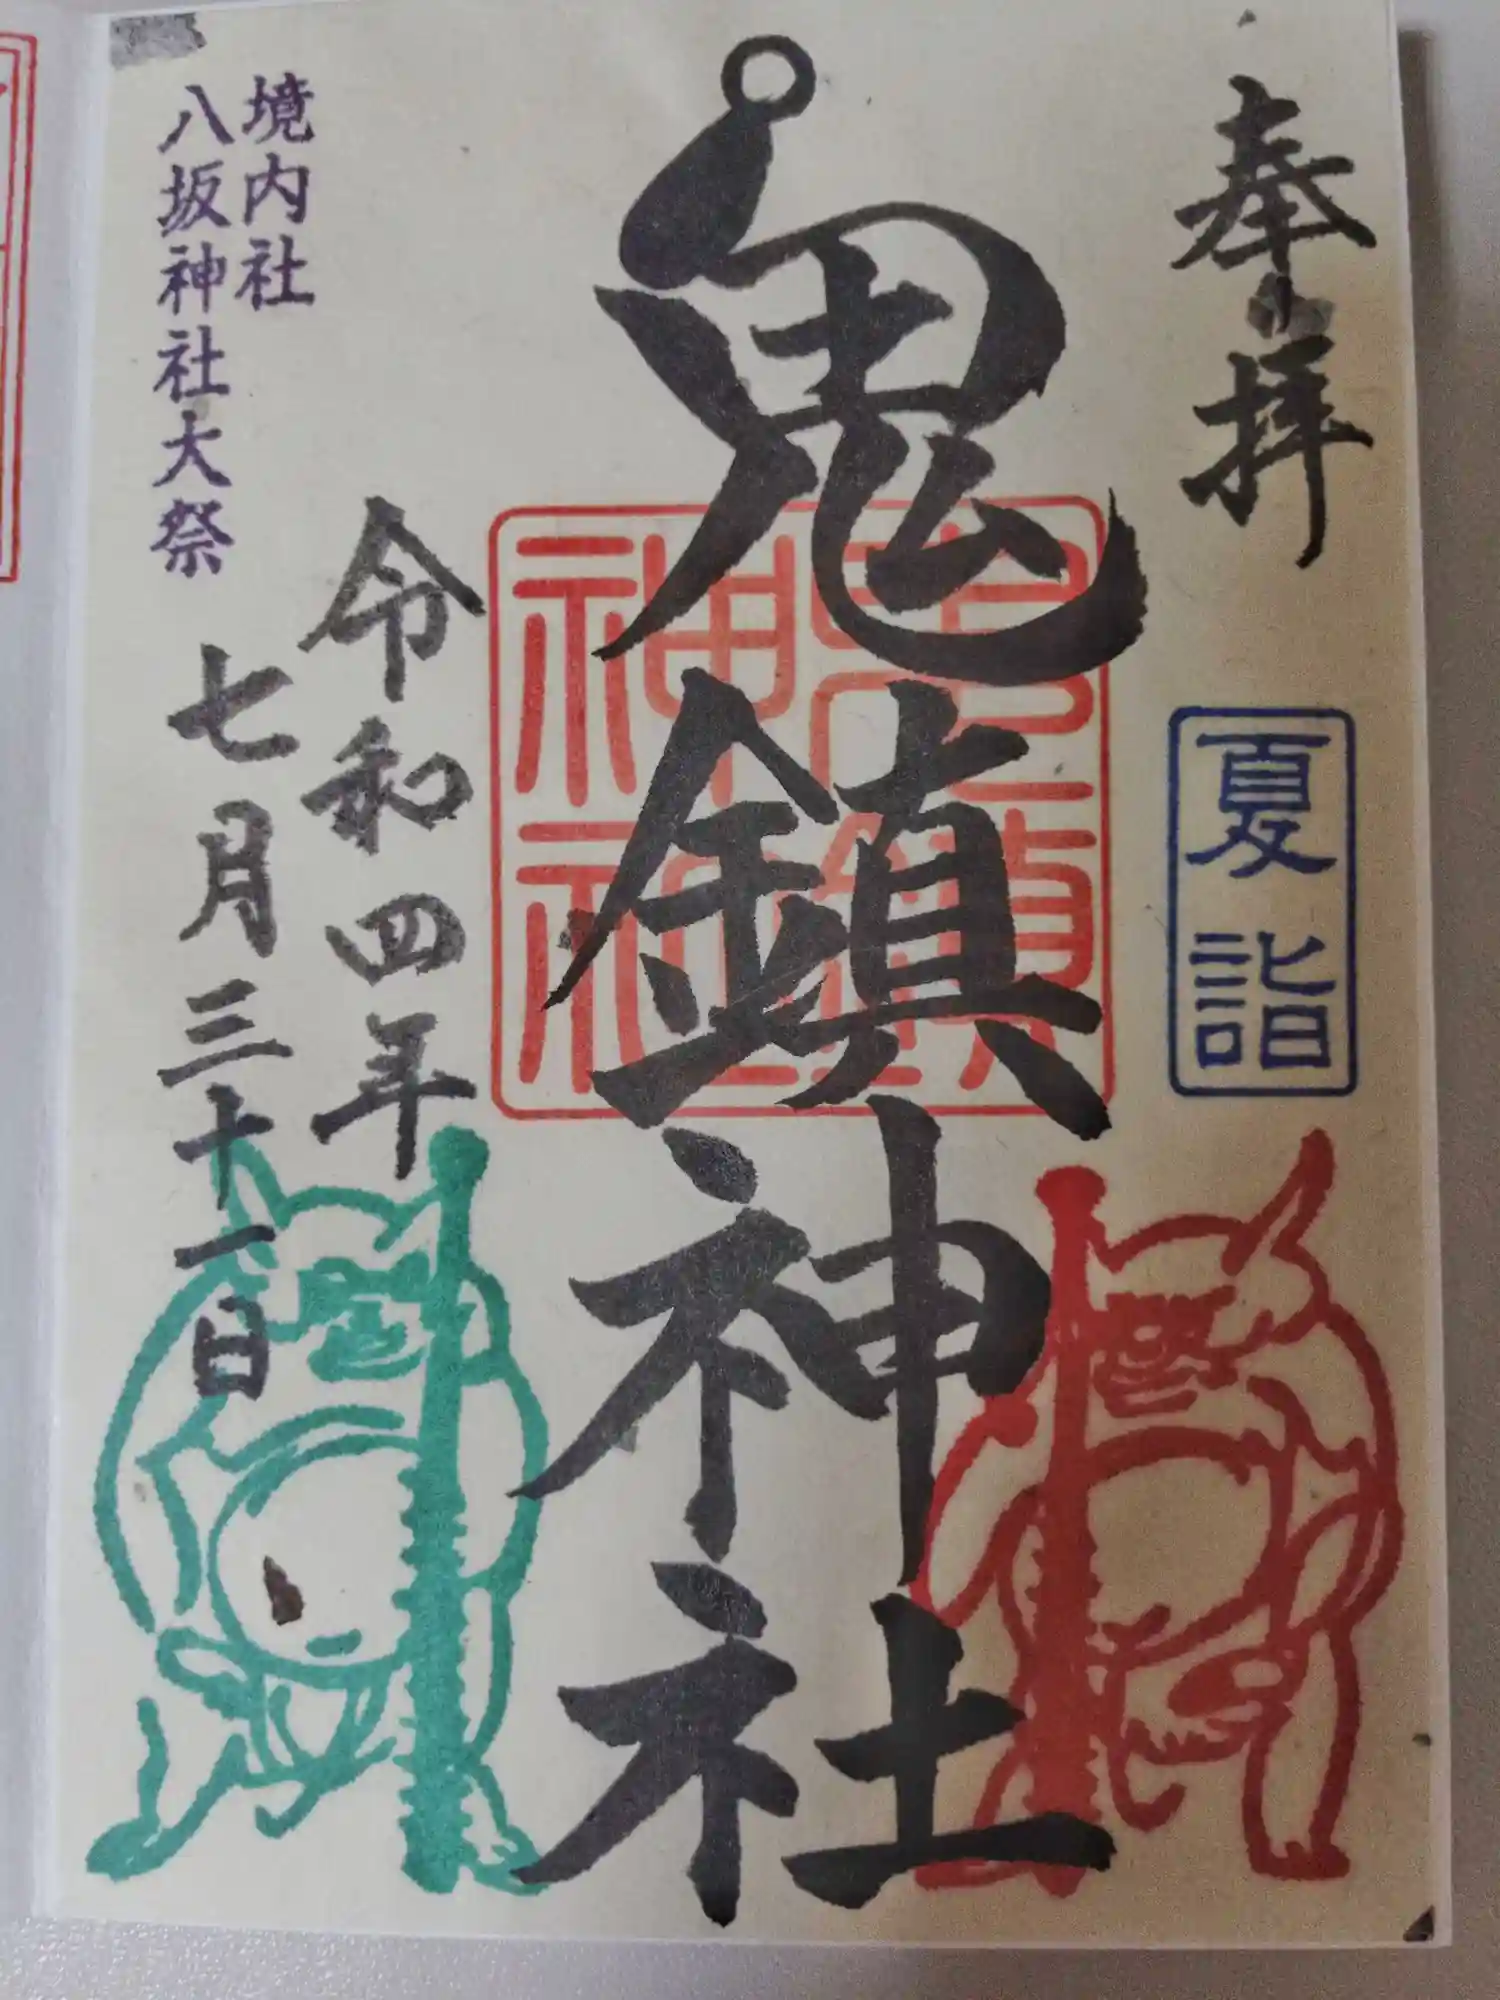 奉拝
夏詣
鬼鎮神社
鬼鎮
神社
令和四年
七月三十一日
境内社
八坂神社大祭